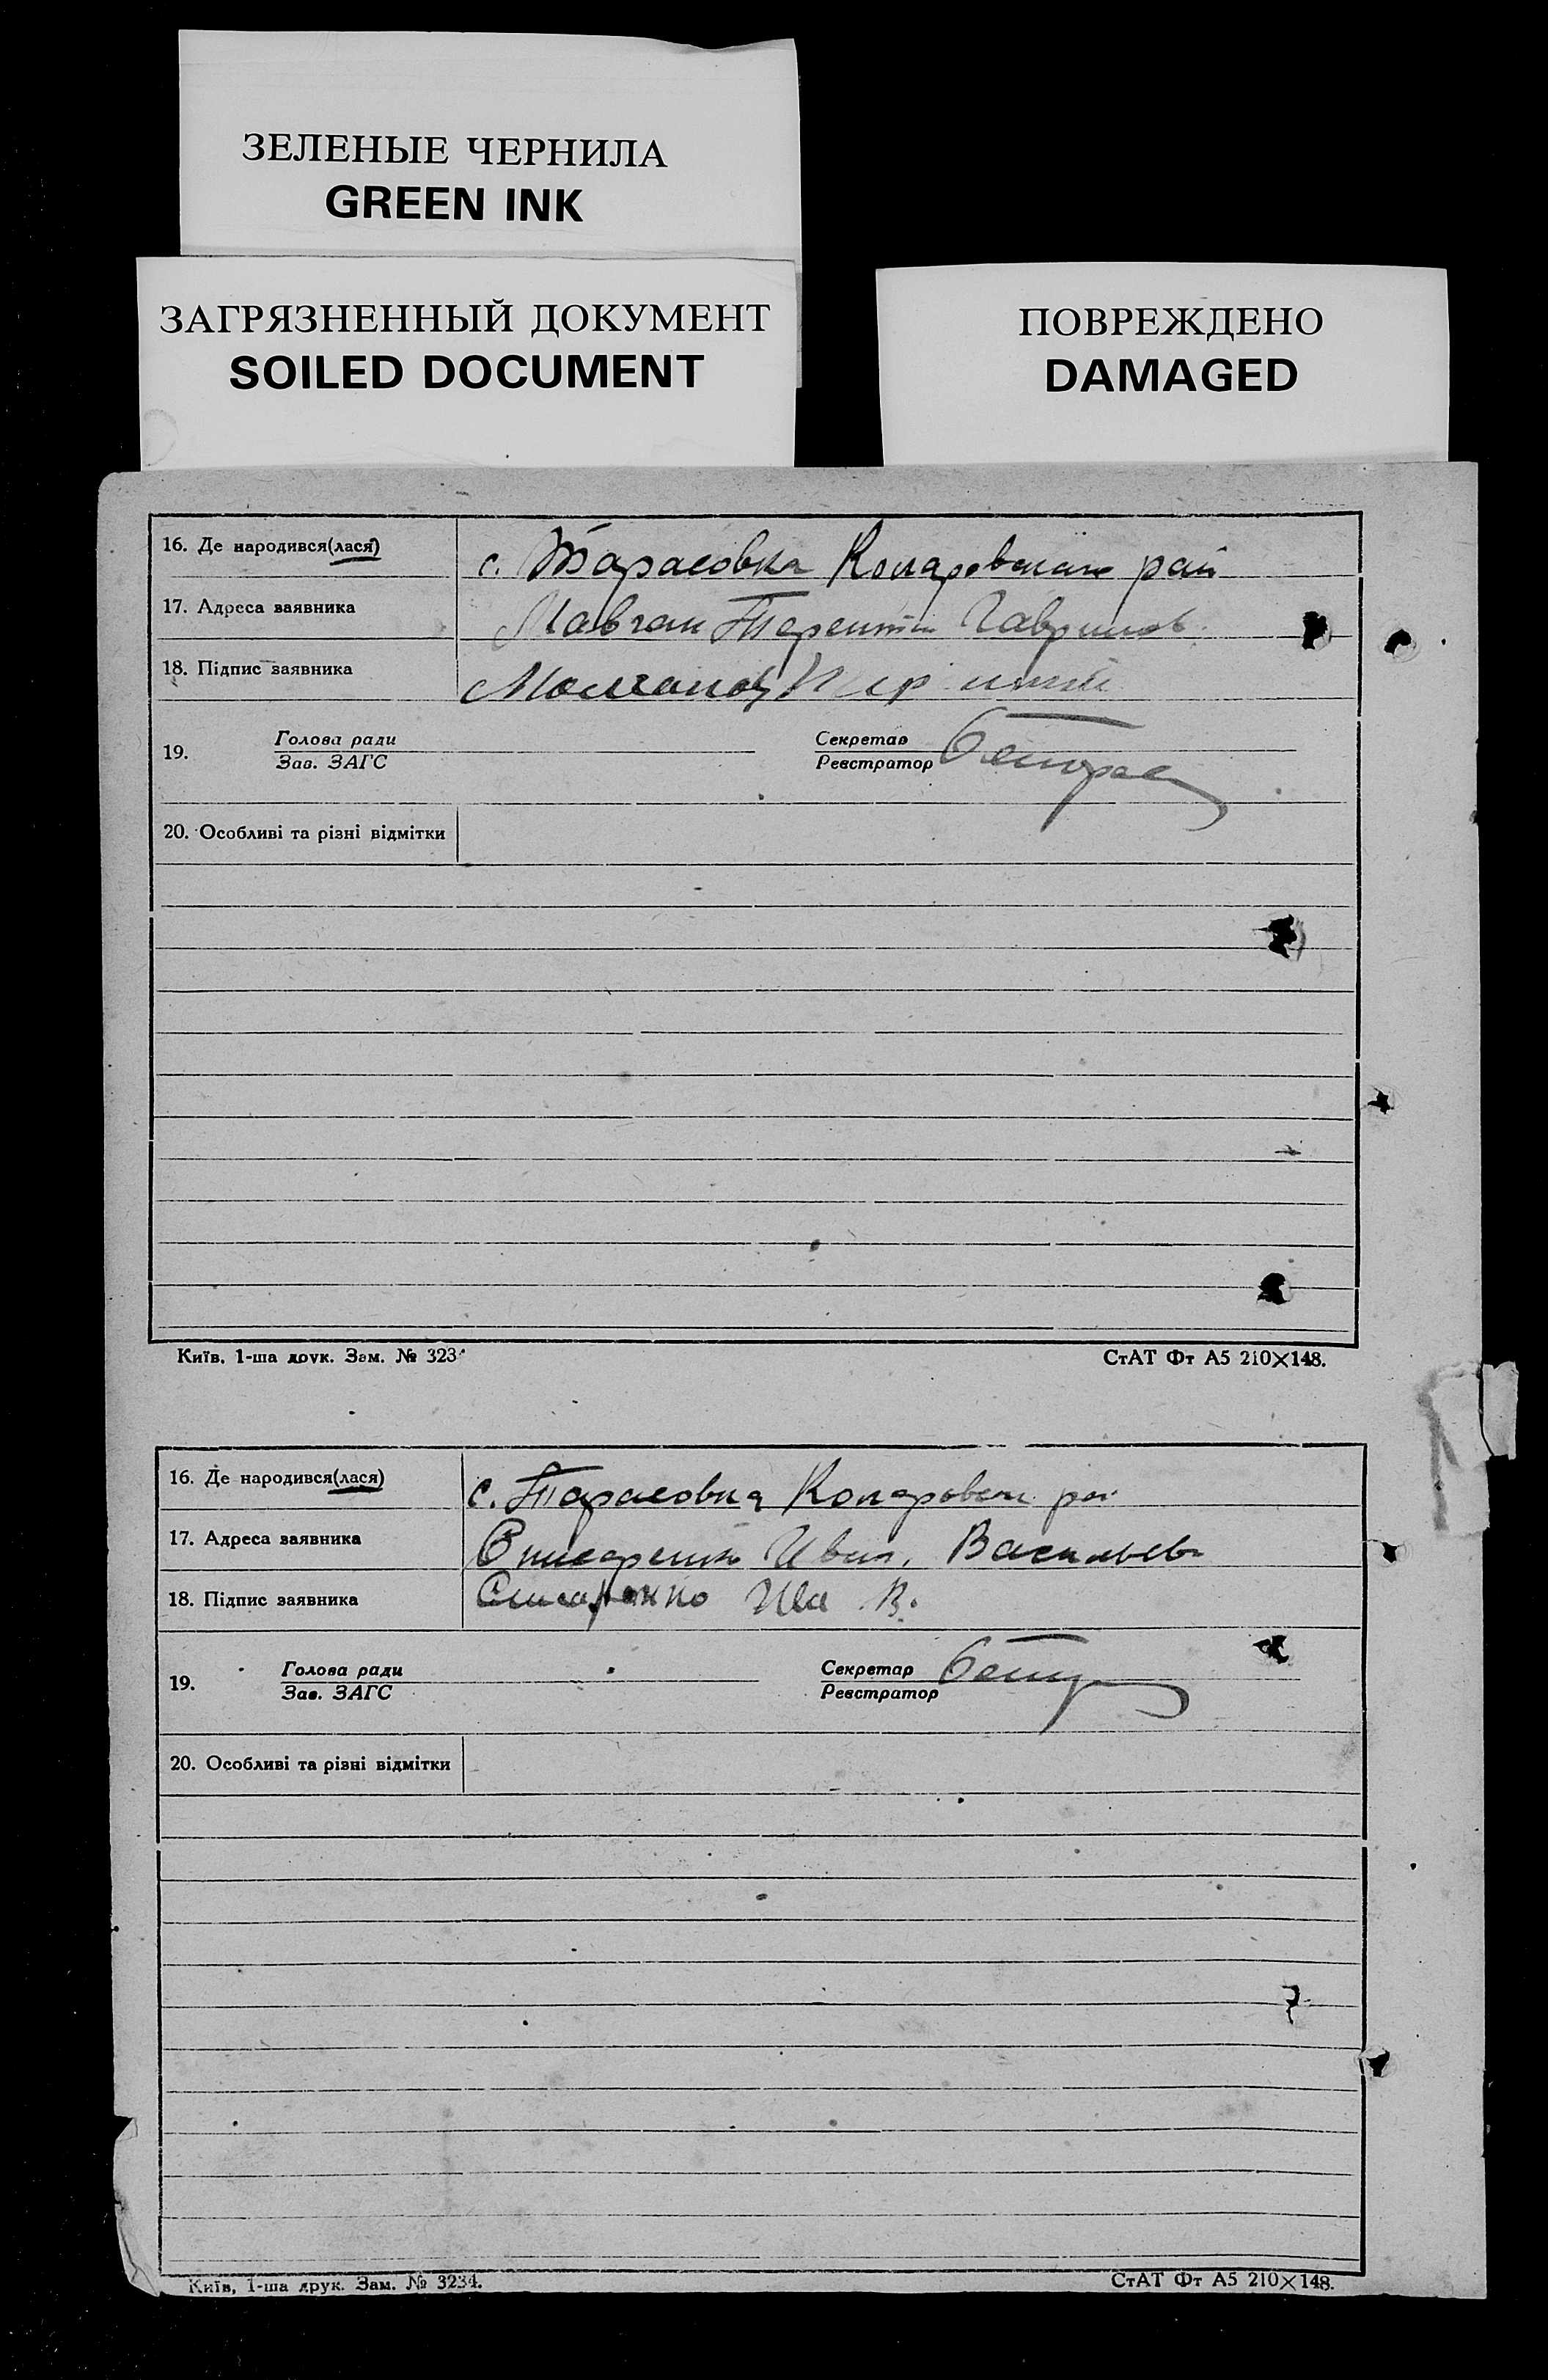 ЗЕЛЕНЫЕ ЧЕРНИЛА
GREEN INK
ЗАГРЯЗНЕННЫЙ ДОКУМЕНТ
SOILED DOCUMENT
ПОВРЕЖДЕНО
DAMAGED
16. Де народився(лася) с. Тарасовка рай
17. Адреса заявника Мавчан Терентий
18. Підпис заявника
19. Голова ради Секретар
Зав. ЗАГС Реєстратор
20. Особливі та різні відмітки
Київ, 1-ша друк. Зам. № 323 СтАТ Фт А5 210×148.
16. Де народився(лася) с. Тарасовка
17. Адреса заявника Иван. Васильев
18. Підпис заявника В.
19. Голова ради Секретар
Зав. ЗАГС Реєстратор
20. Особливі та різні відмітки
Київ, 1-ша друк. Зам. № 3234. СтАТ Фт А5 210×148.